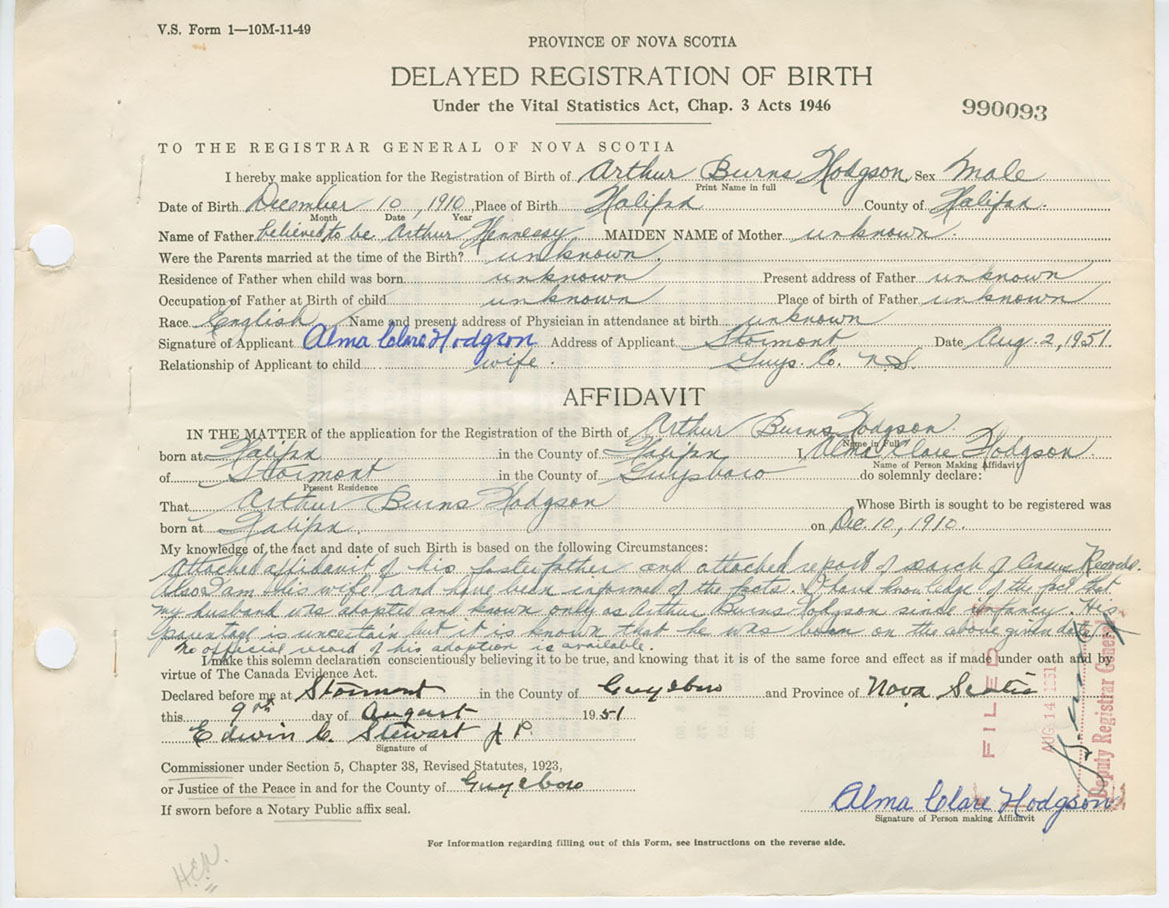 V.S. Form 1—10M-11-49
PROVINCE OF NOVA SCOTIA
DELAYED REGISTRATION OF BIRTH
Under the Vital Statistics Act, Chap. 3 Acts 1946
990093
TO THE REGISTRAR GENERAL OF NOVA SCOTIA
I hereby make application for the Registration of Birth of Arthur Burns Hodgson, Sex Male
Print Name in full
Date of Birth December 10, 1910, Place of Birth Halifax County of Halifax.
Month Date Year
Name of Father believed to be Arthur Hennessy MAIDEN NAME of Mother unknown.
Were the Parents married at the time of the Birth? unknown.
Residence of Father when child was born unknown Present address of Father unknown
Occupation of Father at Birth of child unknown Place of birth of Father unknown
Race English Name and present address of Physician in attendance at birth unknown
Signature of Applicant Alma Clare Hodgson Address of Applicant Stormont Date Aug. 2, 1951.
Relationship of Applicant to child wife. Guys. Co. N.S.
AFFIDAVIT
IN THE MATTER of the application for the Registration of the Birth of Arthur Burns Hodgson.
Name in Full
born at Halifax in the County of Halifax, I Alma Clare Hodgson.
Name of Person Making Affidavit
of Stormont in the County of Guysboro do solemnly declare:
Present Residence
That Arthur Burns Hodgson Whose Birth is sought to be registered was
born at Halifax on Dec. 10, 1910.
My knowledge of the fact and date of such Birth is based on the following Circumstances:
Attached affidavit of his foster father and attached report of search of Census Records.
Also I am his wife and have been informed of the facts. I have knowledge of the fact that
my husband was adopted and known only as Arthur Burns Hodgson since infancy. His
parentage is uncertain but it is known that he was born on the above given date.
No official record of his adoption is available.
I make this solemn declaration conscientiously believing it to be true, and knowing that it is of the same force and effect as if made under oath and by
virtue of The Canada Evidence Act.
Declared before me at Stormont in the County of Guysboro and Province of Nova Scotia
this 9th day of August 1951
Edwin C. Stewart J.P.
Signature of
Commissioner under Section 5, Chapter 38, Revised Statutes, 1923,
or Justice of the Peace in and for the County of Guysboro
If sworn before a Notary Public affix seal.
FILED
AUG 14 1951
Deputy Registrar General
Alma Clare Hodgson
Signature of Person making Affidavit
For Information regarding filling out of this Form, see instructions on the reverse side.